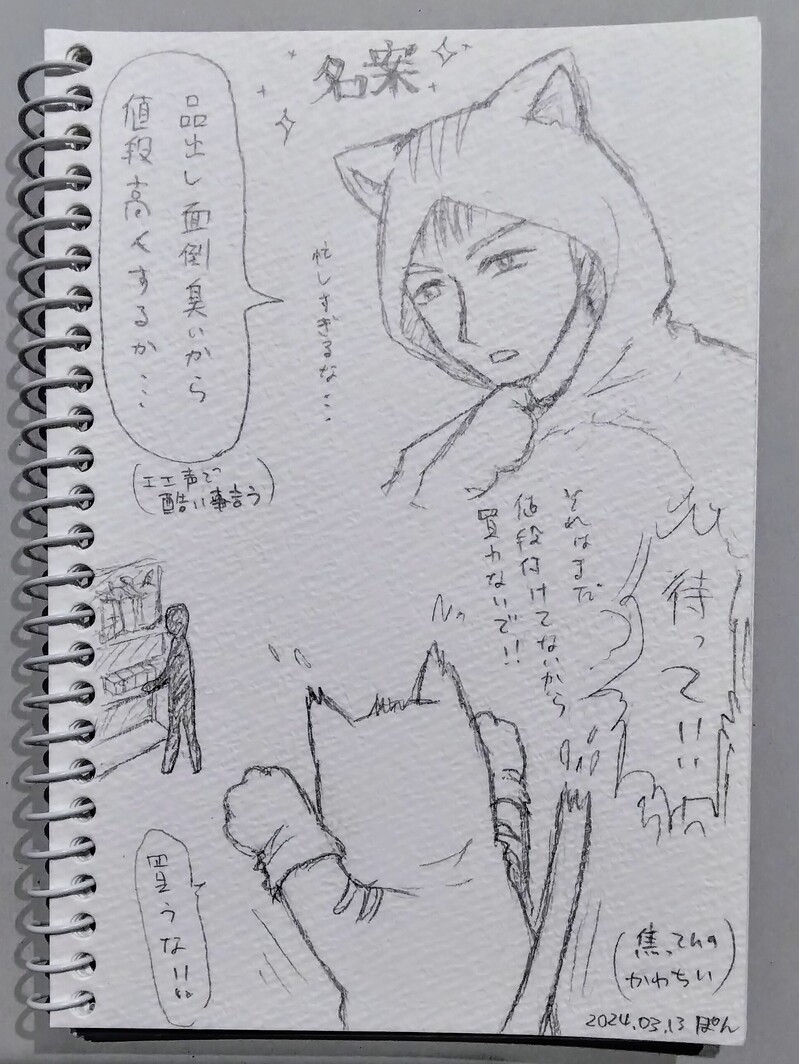 名案
品出し面倒臭いから
値段高くするか…
忙しすぎるな…
(エエ声で
酷い事言う)
待って!!
それはまだ
値段付けてないから
買わないで!!
買うな!!
(焦ってんの
かわちい)
2024.03.13 ぽん